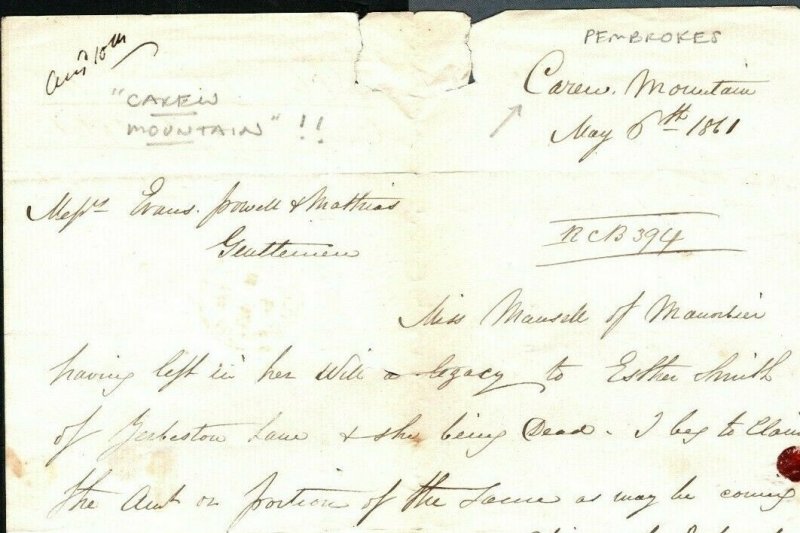 Ansd 10th
"CAREW
MOUNTAIN" !!
PEMBROKES
Carew Mountain
May 6th 1861
Messrs Evans. Powell & Mathias
Gentlemen
NCB 394
Miss Mansell of Manorbier
having left in her Will a legacy to Esther Smith
of Yerbeston Lane & she being Dead. I beg to Claim
the Amt or portion of the Same as may be coming